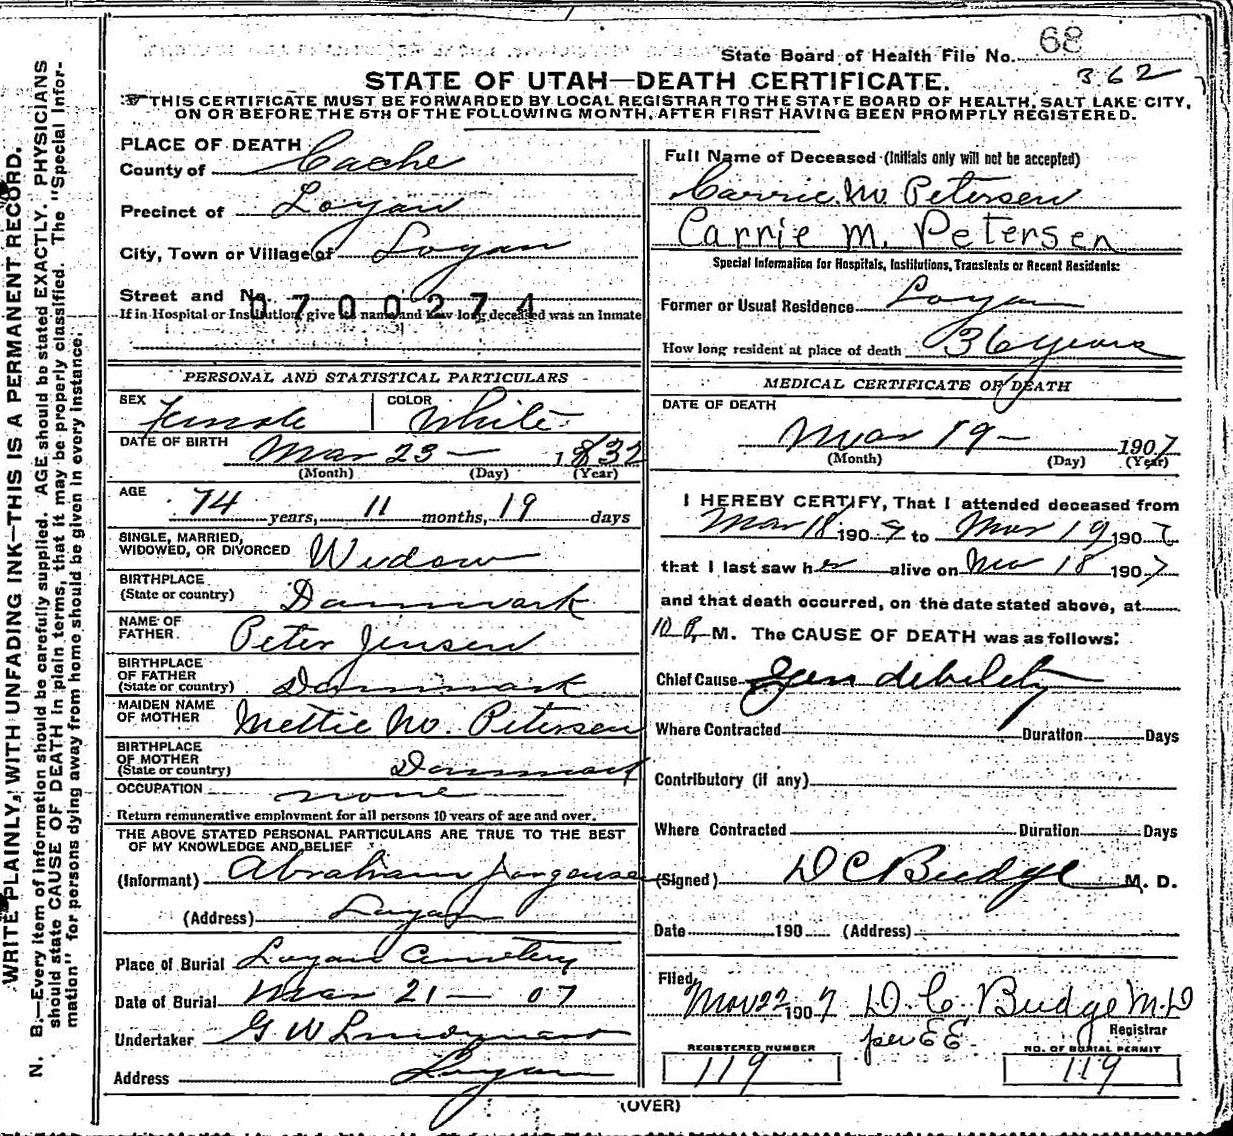 State Board of Health File No. 68
362
STATE OF UTAH—DEATH CERTIFICATE.
THIS CERTIFICATE MUST BE FORWARDED BY LOCAL REGISTRAR TO THE STATE BOARD OF HEALTH, SALT LAKE CITY,
ON OR BEFORE THE 5TH OF THE FOLLOWING MONTH, AFTER FIRST HAVING BEEN PROMPTLY REGISTERED.
WRITE PLAINLY, WITH UNFADING INK—THIS IS A PERMANENT RECORD.
N. B.—Every item of information should be carefully supplied. AGE should be stated EXACTLY. PHYSICIANS
should state CAUSE OF DEATH in plain terms, that it may be properly classified. The "Special Infor-
mation" for persons dying away from home should be given in every instance.
PLACE OF DEATH
County of Cache
Precinct of Logan
City, Town or Village of Logan
Street and No. 0700274
If in Hospital or Institution, give its name and how long deceased was an Inmate
PERSONAL AND STATISTICAL PARTICULARS
SEX Female COLOR White
DATE OF BIRTH
Mar 23 — 1832
(Month) (Day) (Year)
AGE
74 years, 11 months, 19 days
SINGLE, MARRIED,
WIDOWED, OR DIVORCED Widow
BIRTHPLACE
(State or country) Danmark
NAME OF
FATHER Peter Jensen
BIRTHPLACE
OF FATHER
(State or country) Danmark
MAIDEN NAME
OF MOTHER Mettie M. Petersen
BIRTHPLACE
OF MOTHER
(State or country) Danmark
OCCUPATION none
Return remunerative employment for all persons 10 years of age and over.
THE ABOVE STATED PERSONAL PARTICULARS ARE TRUE TO THE BEST
OF MY KNOWLEDGE AND BELIEF
(Informant) Abraham Jorgensen
(Address) Logan
Place of Burial Logan Cemetery
Date of Burial Mar 21 — 07
Undertaker G W
Address Logan
Full Name of Deceased (Initials only will not be accepted)
Carrie M. Petersen
Carrie M. Petersen
Special Information for Hospitals, Institutions, Transients or Recent Residents:
Former or Usual Residence Logan
How long resident at place of death 36 years
MEDICAL CERTIFICATE OF DEATH
DATE OF DEATH
Mar 19 — 1907
(Month) (Day) (Year)
I HEREBY CERTIFY, That I attended deceased from
Mar 18 1907 to Mar 19 1907
that I last saw her alive on Mar 18 1907
and that death occurred, on the date stated above, at
10 P. M. The CAUSE OF DEATH was as follows:
Chief Cause Gen debility
Where Contracted Duration Days
Contributory (if any)
Where Contracted Duration Days
(Signed) D C Budge M. D.
Date 190 (Address)
Filed Mar 22 1907 D. C. Budge M.D
per EE Registrar
REGISTERED NUMBER NO. OF BURIAL PERMIT
119 119
(OVER)